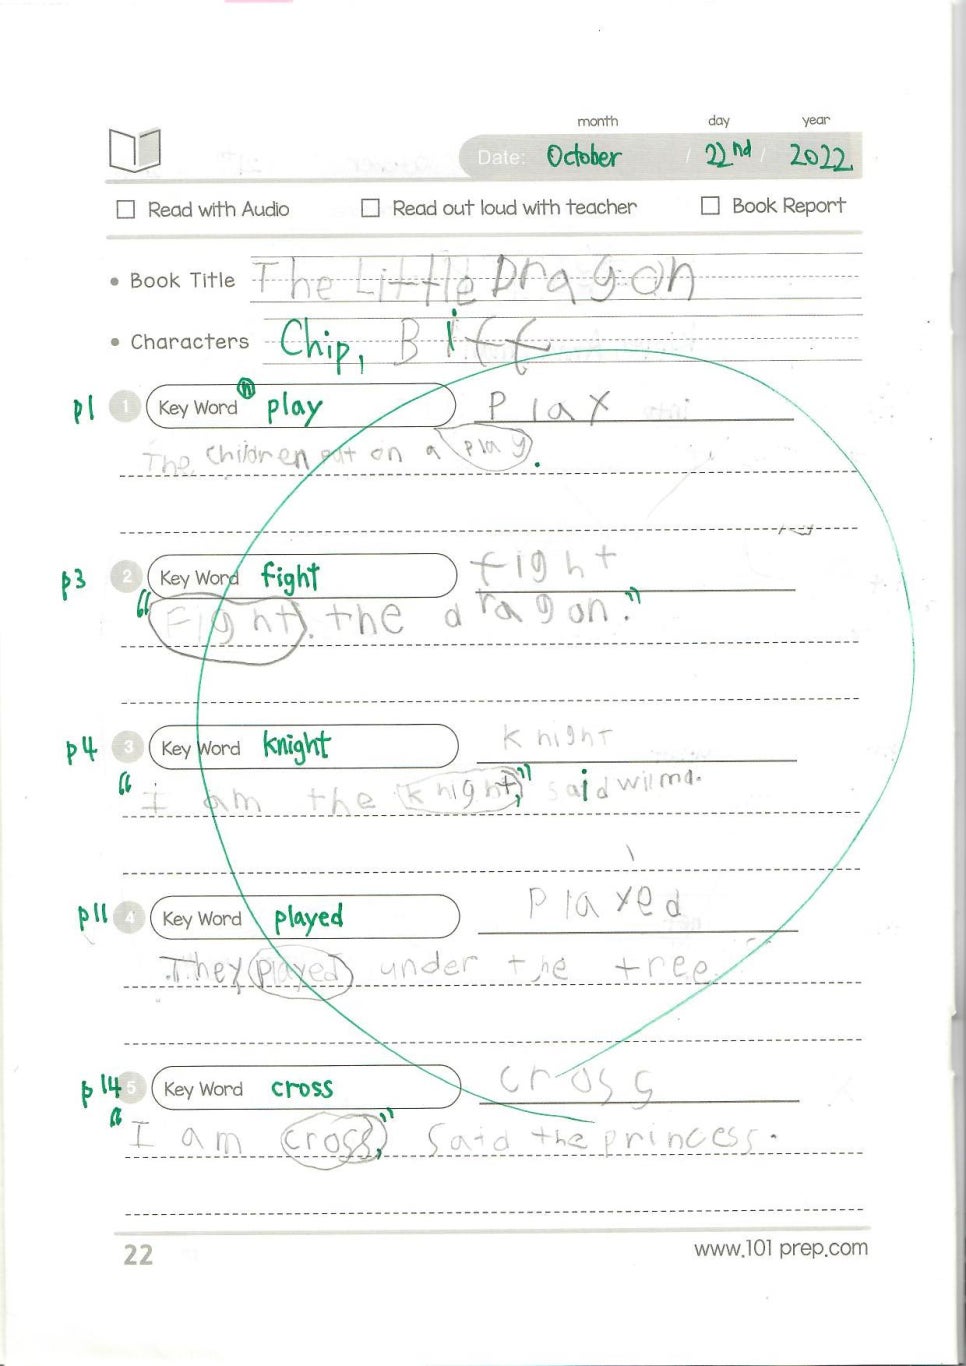 month day year
Date: October / 22nd / 2022
Read with Audio Read out loud with teacher Book Report
• Book Title The Little Dragon
• Characters Chip, Biff
p1 1 Key Word n play play
The children put on a play.
p3 2 Key Word fight fight
"Fight the dragon."
p4 3 Key Word knight knight
"I am the knight," said wilma.
p11 4 Key Word played played
They played under the tree.
p14 5 Key Word cross cross
"I am cross," said the princess.
22 www.101prep.com